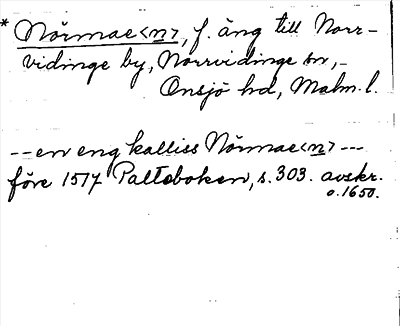 * Nörmae<n>, f. äng till Norr-
vidinge by, Norrvidinge sn,-
Onsjö hd, Malm.l.
-- en eng kalliss Nörmae<n> ---
före 1517 Palteboken, s. 303. avskr.
o. 1650.